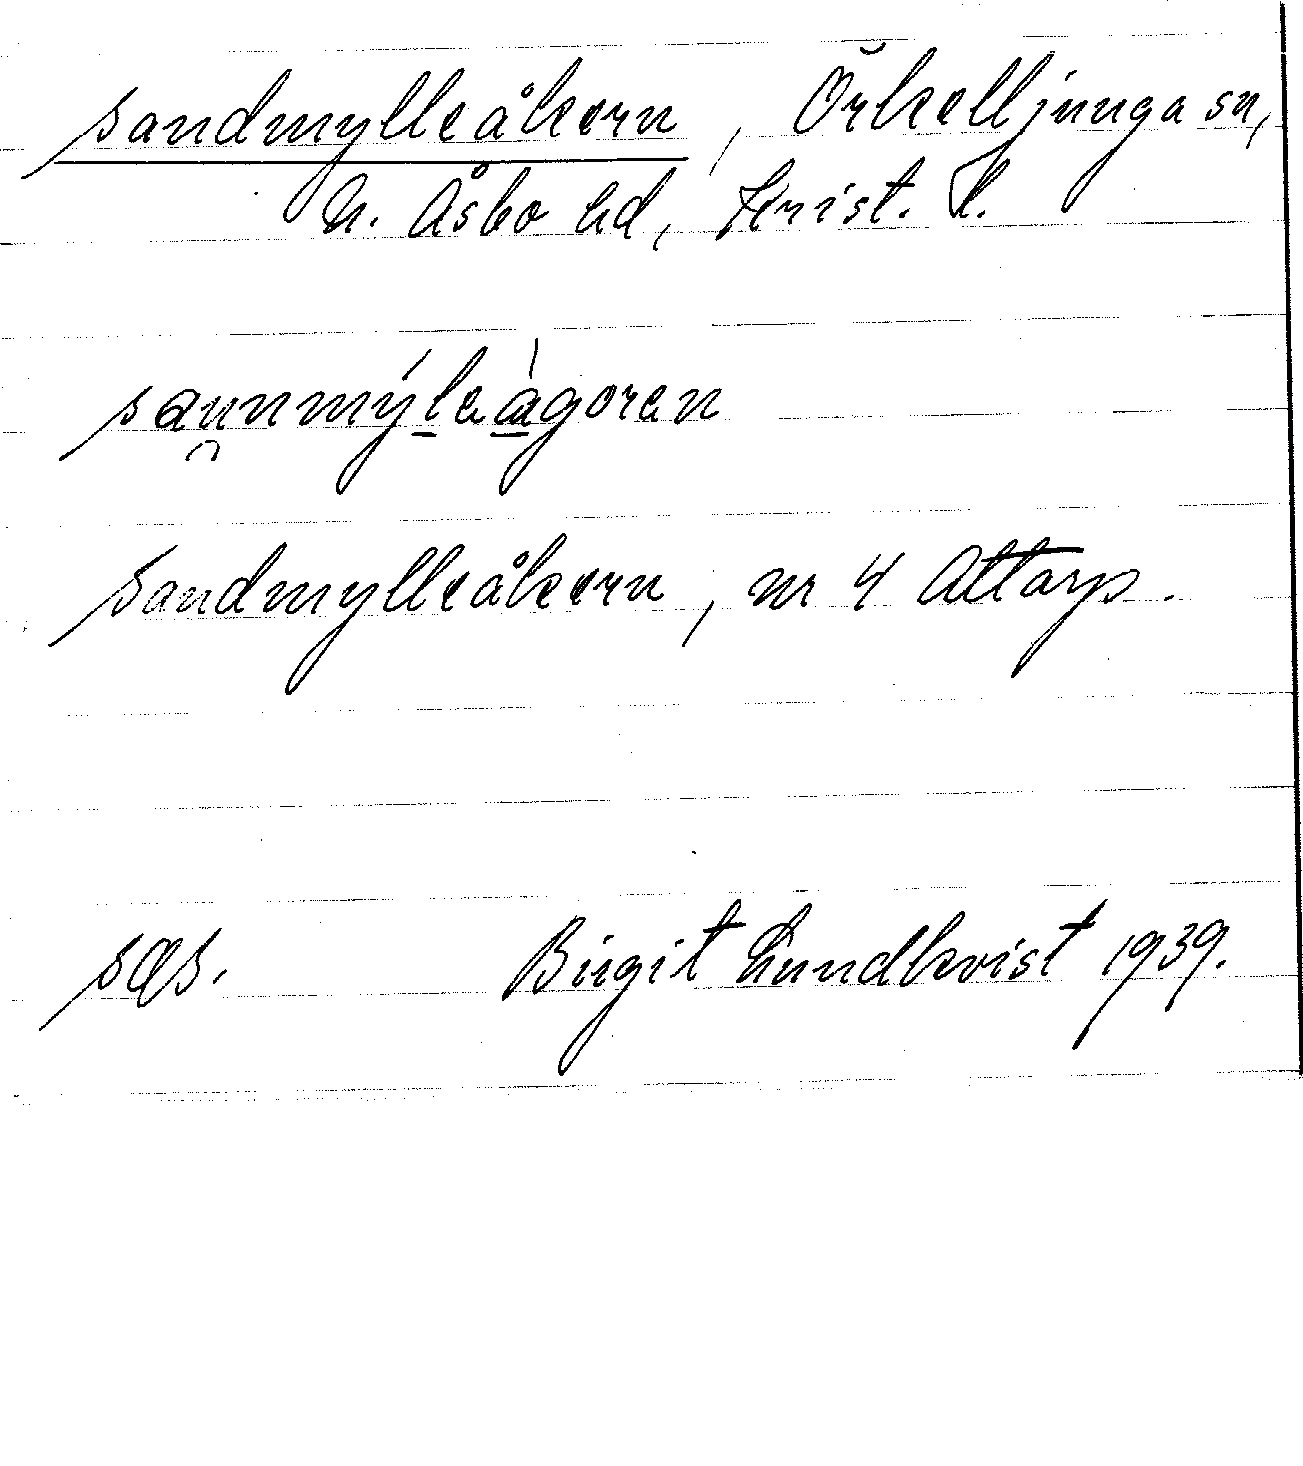 sandmylleåkern, Örkelljunga sn,
N. Åsbo hd, Krist. l.
Sandmylleåkern, nr 4 Attarp.
sgs. Birgit Lundkvist 1939.